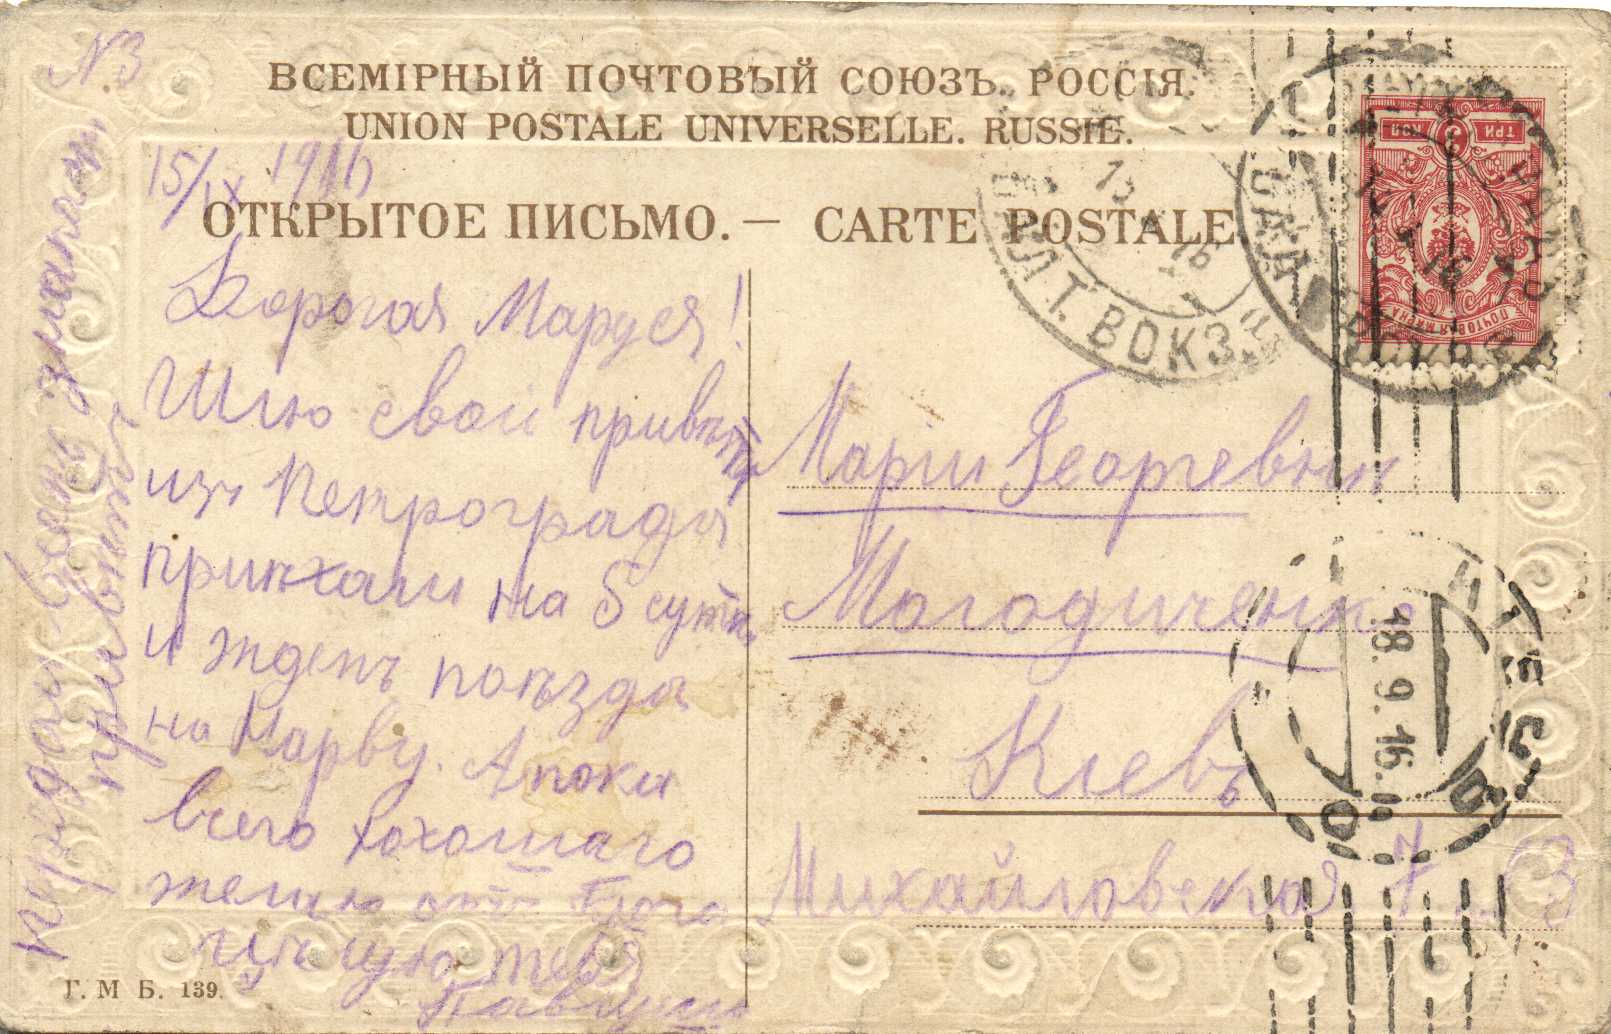 N.3
ВСЕМІРНЫЙ ПОЧТОВЫЙ СОЮЗЪ. РОССІЯ.
UNION POSTALE UNIVERSELLE. RUSSIE.
15/IX 1916
ОТКРЫТОЕ ПИСЬМО. — CARTE POSTALE
Дорогая Маруся!
Шлю свой привѣтъ
изъ Петрограда
приѣхали на 5 сутки
и ждемъ поѣзда
на Нарву. А пока
всего хохошаго
желаю отъ Бога
цѣлую тебя
Павлуша
Передай всемъ знакомым
привѣтъ
Маріи Георгевни
Молодиченко
Кіевъ
Михайловская 7
Г. М Б. 139.
ТРИ 3 КОП
ПОЧТОВАЯ МАРКА
БАЛТ. ВОКЗ.
18.9.16